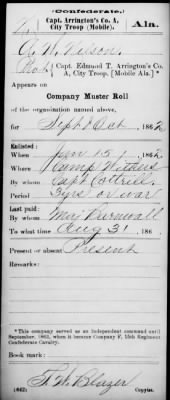 (Confederate.)
Capt. Arrington's Co. A,
City Troop (Mobile)
Ala.
A. W. Nelson
Capt. Edmund T. Arrington's Co.
A, City Troop, (Mobile Ala.)*
Appears on
Company Muster Roll
of the organization named above,
for Sept & Oct, 1862
Enlisted:
When 15, 1862
Where Camp Withers
By whom Capt Cottrill
Period 3 yrs or war
Last paid:
By whom Maj
To what time Aug 31, 186
Present or absent Present
Remarks:
*This company served as an independent command until
September, 1863, when it became Company F, 15th Regiment
Confederate Cavalry.
Book mark:
(642)
Copyist.